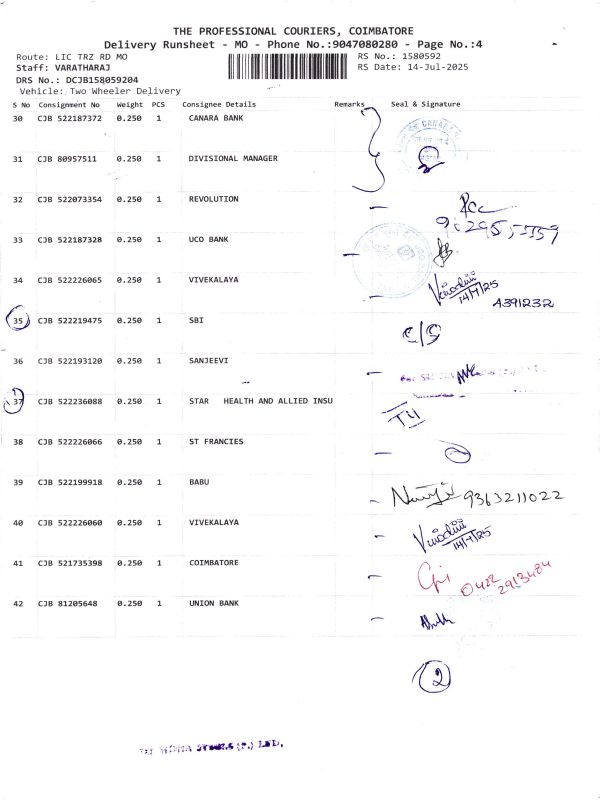 THE PROFESSIONAL COURIERS, COIMBATORE
Delivery Runsheet - MO - Phone No.:9047080280 - Page No.:4
Route: LIC TRZ RD MO RS No.: 1580592
Staff: VARATHARAJ RS Date: 14-Jul-2025
DRS No.: DCJB158059204
Vehicle: Two Wheeler Delivery
S No Consignment No Weight PCS Consignee Details Remarks Seal & Signature
30 CJB 522187372 0.250 1 CANARA BANK
31 CJB 80957511 0.250 1 DIVISIONAL MANAGER
32 CJB 522073354 0.250 1 REVOLUTION
33 CJB 522187328 0.250 1 UCO BANK
34 CJB 522226065 0.250 1 VIVEKALAYA Vinodini
14/7/25
A391232
35 CJB 522219475 0.250 1 SBI C/S
36 CJB 522193120 0.250 1 SANJEEVI
37 CJB 522236088 0.250 1 STAR HEALTH AND ALLIED INSU
38 CJB 522226066 0.250 1 ST FRANCIES
39 CJB 522199918 0.250 1 BABU 9363211022
40 CJB 522226060 0.250 1 VIVEKALAYA Vinodini
14/7/25
41 CJB 521735398 0.250 1 COIMBATORE 0422
2913484
42 CJB 81205648 0.250 1 UNION BANK
2